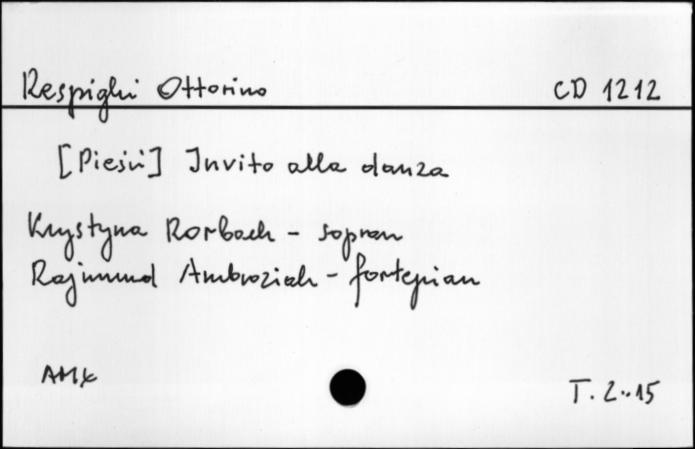 Respighi Ottorino CD 1212
[Pieśń] Invito alla danza
Krystyna Rorbach - sopran
Rajmund Ambroziak - fortepian
T. 2..15